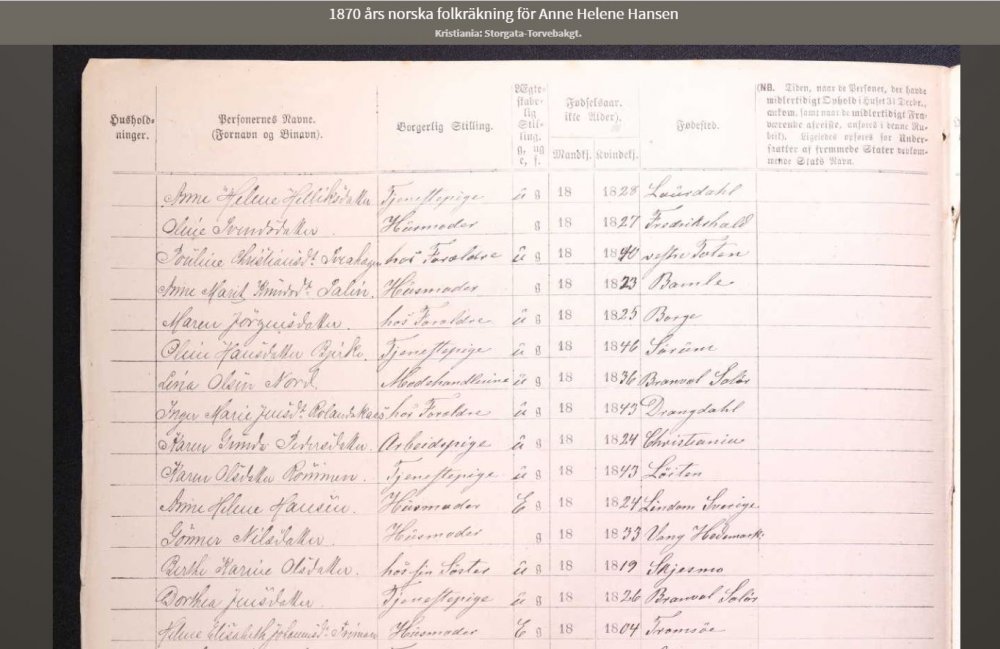 1870 års norska folkräkning för Anne Helene Hansen
Kristiania: Storgata-Torvebakgt.
Hushold-
ninger.
Personernes Navne.
(Fornavn og Binavn).
Borgerlig Stilling.
Ægte-
skabe-
lig
Stil-
ling.
g, ug
e, f.
Fødselsaar.
(ikke Alder).
Mandkj. Kvindekj.
Fødested.
(NB. Tiden, naar de Personer, der havde
midlertidigt Ophold i Huset 31 Decbr.,
ankom, samt naar de midlertidigt Fra-
værende afreiste, anføres i denne Ru-
brik). Ligeledes opføres for Under-
saatter af fremmede Stater vedkom-
mende Stats Navn.
Anne Helene Helliksdatter Tjenestepige ü g 18 1828 Laurdahl
Oline Svendsdatter. Husmoder g 18 1827 Fredrikshald
Pouline Christiansdt. hos Forældre ü g 18 1840 vestre Toten
Anne Marit Knudsdt. Husmoder g 18 1823 Bamle
Maren Jörgensdatter. hos Forældre ü g 18 1825 Borge
Oline Hansdatter Bjerke. Tjenestepige ü g 18 1846 Sörum
Lina Olsen Nord. Modehandlerine ü g 18 1836 Branval Solör
Inger Marie Jensdt. hos Forældre ü g 18 1843 Drangdahl
Karen Gunda Pedersdatter. Arbeidspige ü g 18 1824 Christiania
Karen Olsdatter Tjenestepige ü g 18 1843 Löiten
Anne Helene Hansen. Husmoder E g 18 1824 Lindom Sverige
Gönner Nilsdatter Husmoder g 18 1833 Vang Hedemark.
Berthe Karine Olsdatter. hos sin Söster ü g 18 1819 Skjesmo
Dorthea Jensdatter Tjenestepige ü g 18 1826 Branval Solör
Helene Elisabeth Johannesdt. Husmoder E g 18 1804 Tromsöe